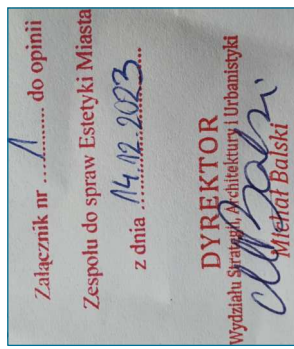 Załącznik nr ...1........ do opinii
Zespołu do spraw Estetyki Miasta
z dnia ..14.12.2023...
DYREKTOR
Wydziału Strategii Architektury i Urbanistyki
Michał Balski